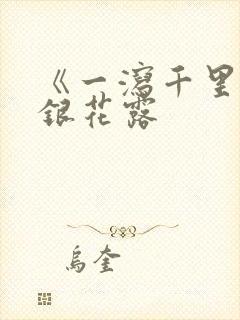 《一瀉千里
銀花露
烏奎